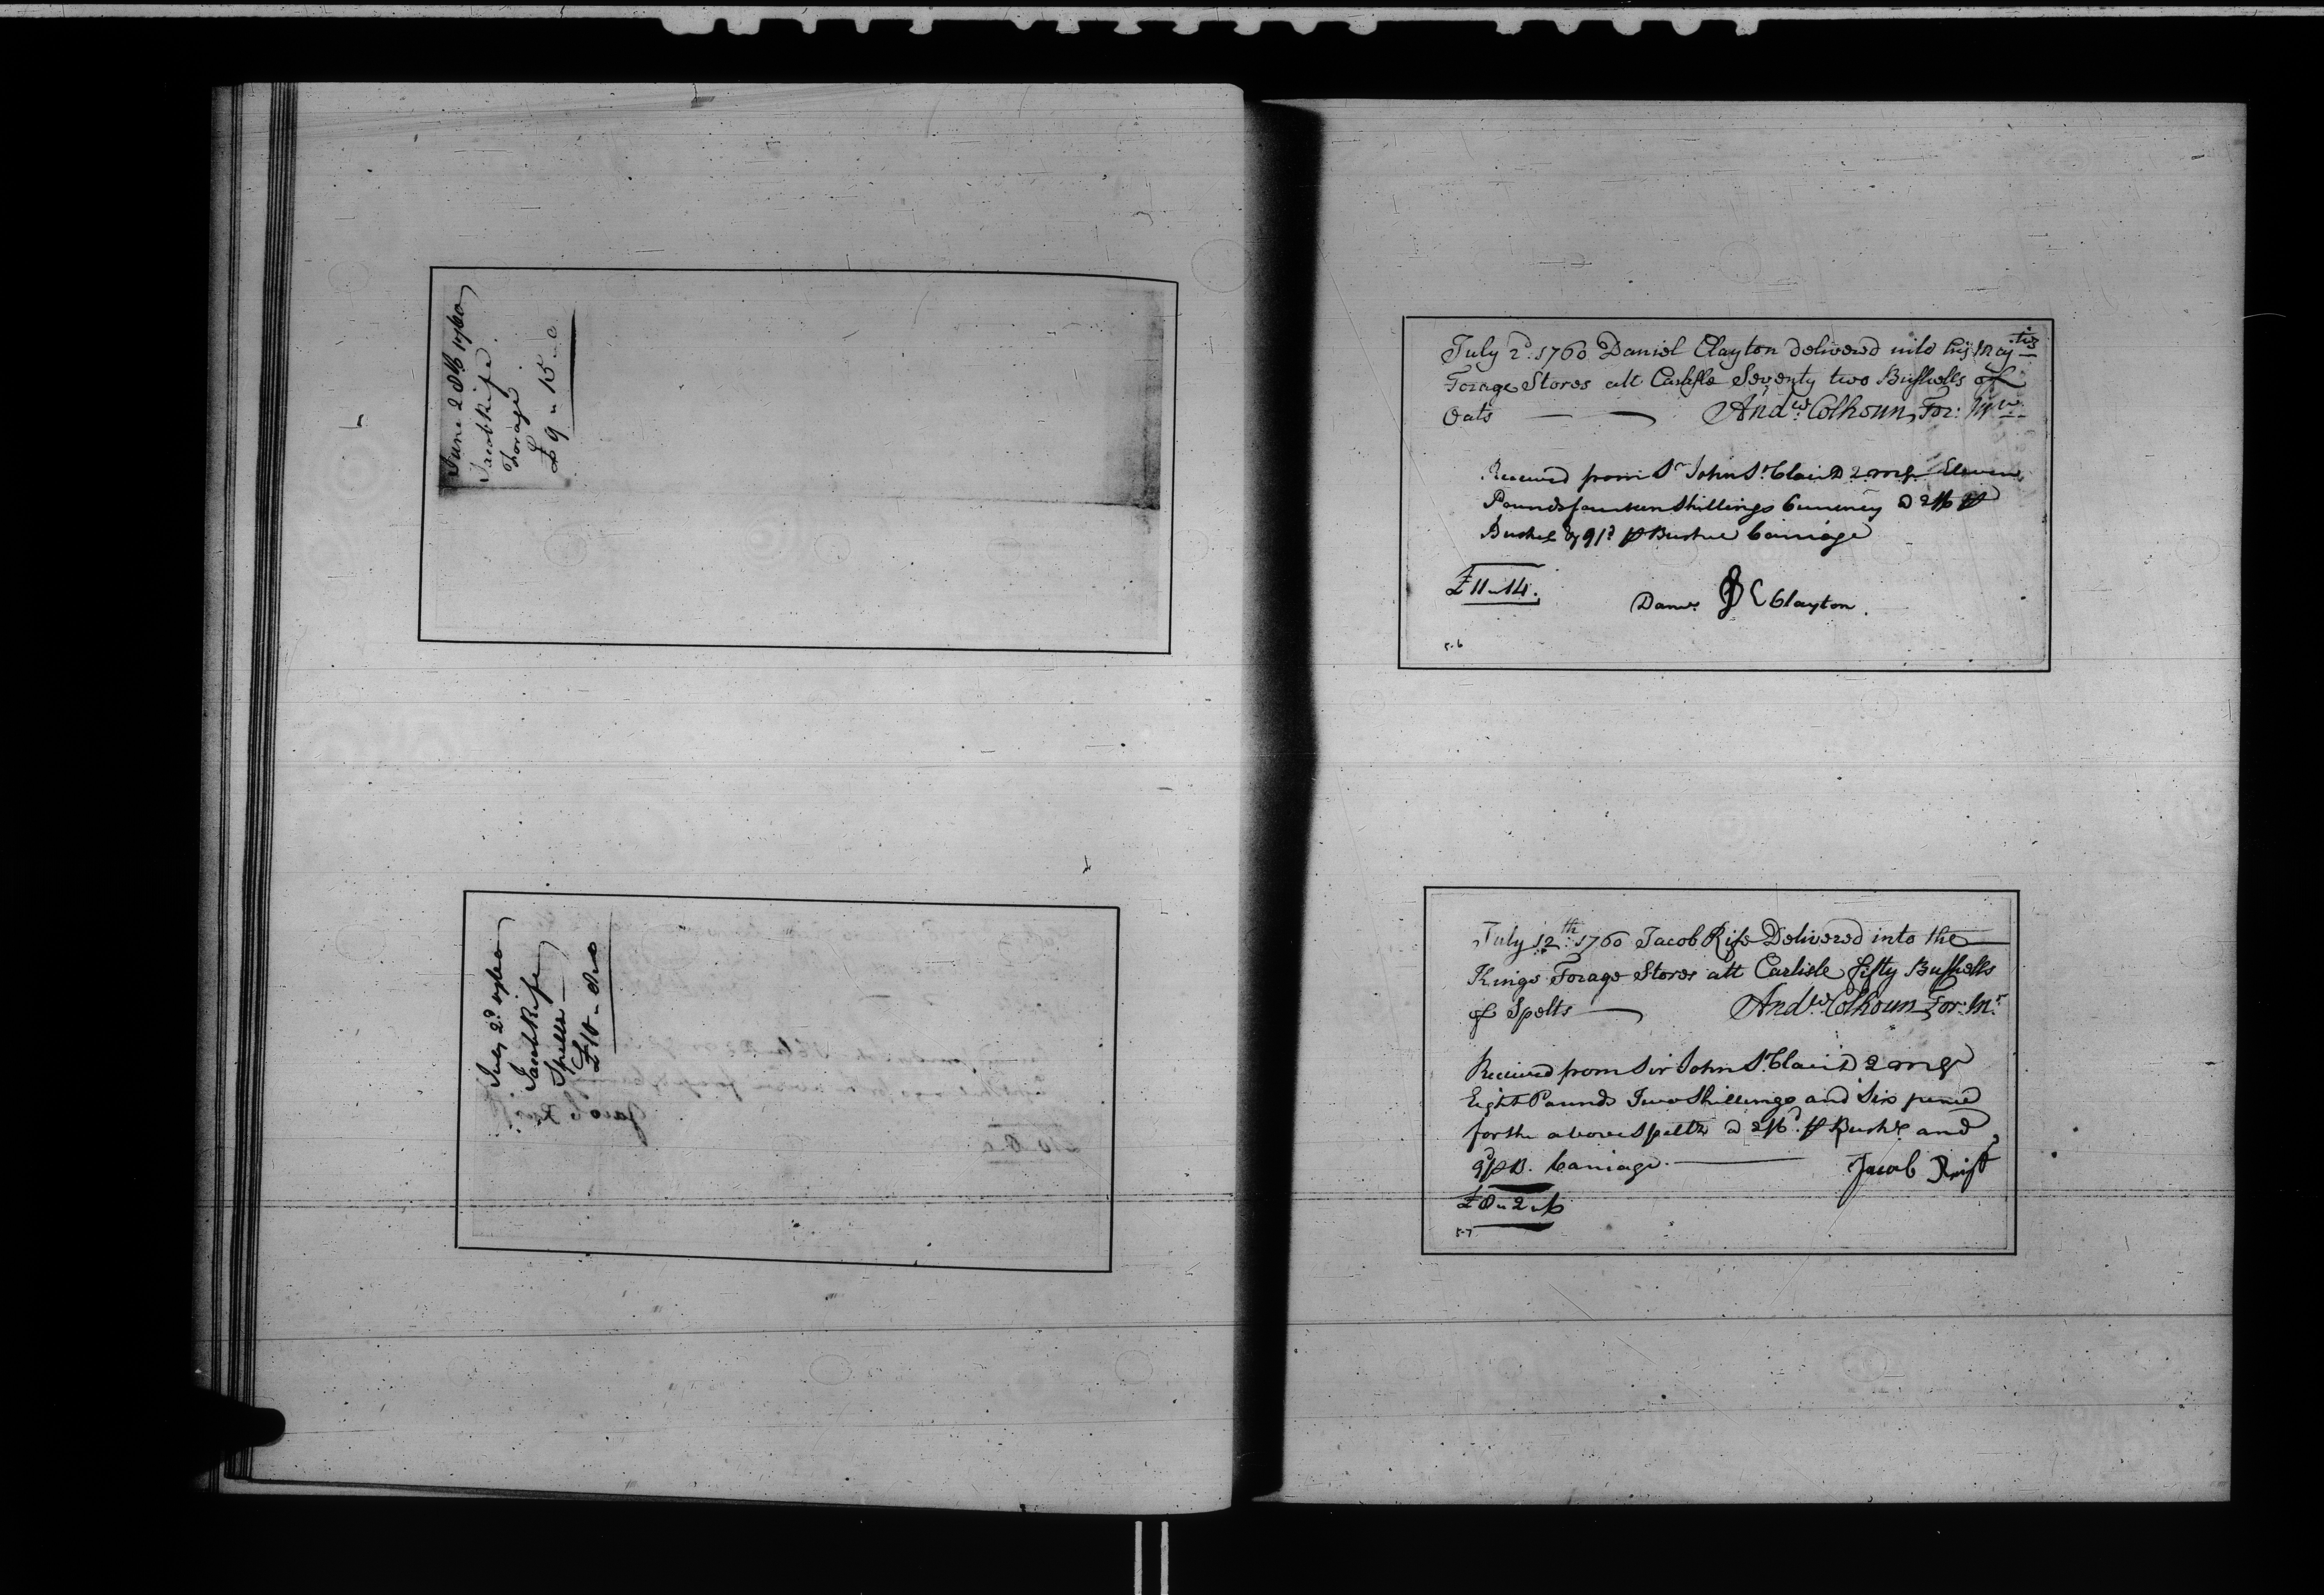 June 28th 1760
Jacob Rife
Forage
£9 " 15 " 0
July 2d. 1760
Jacob Rife
Spelts
£10
Jacob Reif
July 2d. 1760 Daniel Clayton delivered into his Majties
Forage Stores att Carlisle Seventy two Bushells of
Oats — — Andw. Colhoun, For: Mr.
Received from Sr John St. Clair D2MG Eleven
Pounds fourteen Shillings Currency @ 2/6 ⅌
Bushel & 9d. ⅌ Bushel Carriage
£11 " 14.
Danl. DC Clayton.
56
July 12th: 1760 Jacob Rife Delivered into the
Kings Forage Stores att Carlisle fifty Bushells
of Spelts — Andw. Colhoun For: Mr.
Received from Sir John St. Clair D2MG
Eight Pounds Two Shillings and Six pence
for the above Spelts @ 2/6d. ⅌ Bushl and
9d ⅌ B. Carriage. — Jacob Reif
£8 " 2 " 6
57